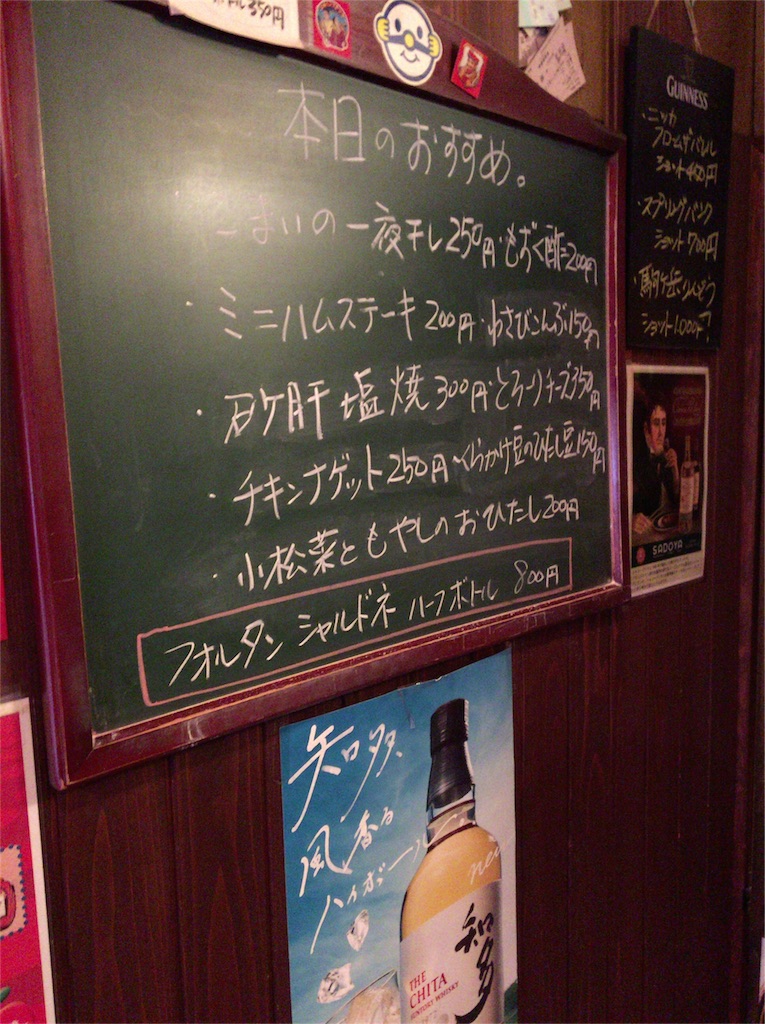 350円
本日のおすすめ。
こまいの一夜干し250円・もずく酢200円
・ミニハムステーキ200円・わさびこんぶ150円
・砂肝塩焼300円・とろ〜りチーズ350円
・チキンナゲット250円・くらかけ豆のひたし豆150円
・小松菜ともやしのおひたし200円
フォルタン シャルドネ ハーフボトル 800円
GUINNESS
・ニッカ
フロームザバレル
ショット450円
・スプリングバンク
ショット700円
・駒ヶ岳りんどう
ショット1.000円
SADOYA
知多、
風香る
ハイボール
new
知多
THE
CHITA
SUNTORY WHISKY